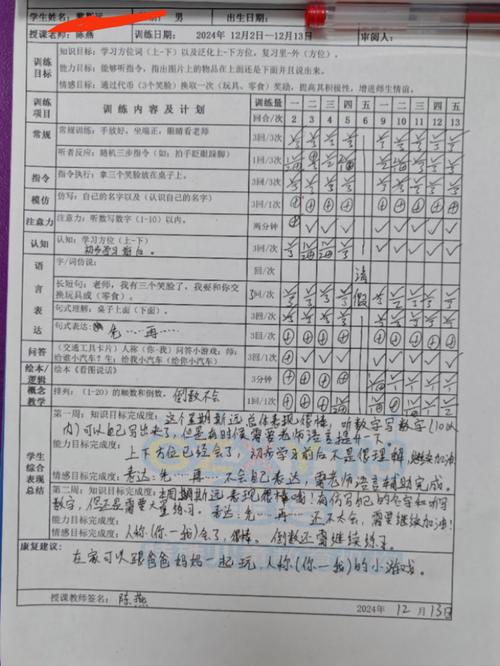 学生姓名 男 出生日期:
授课老师: 陈燕 训练日期: 2024年 12月2日—12月13日 审阅人:
训练目标
知识目标: 学习方位词(上-下)以及泛化上-下方位, 复习里-外(方位)。
能力目标: 能够听指令, 指出图片上的物品在上面还是下面并且说出来。
情感目标: 通过代币(3个笑脸)换取一次(玩具、零食)奖励, 提高其积极性, 增进师生情谊。
训练项目 训练内容及计划 训练量 一 二 三 四 五 六 一 二 三 四 五
回合/次 2 3 4 5 5 6 9 10 11 12 13
常规 常规训练: 手放好, 坐端正, 眼睛看老师 3回/次
听者反应: 随机三步指令(如: 拍手眨眼跺脚) 1回/3次
指令 指令执行: 拿三个笑脸在桌子上。 3回/次
模仿 仿写: 自己的名字以及(认识自己的名字) 3回/1次
注意力 注意力: 听数写数字(1-10)以内。 两分钟
认知 认知: 学习方位(上-下) 3回/次
初步学习前后。
语言表达 字/词仿说: 回/次 清
长短句: 老师, 我有三个笑脸了, 我要和你交换玩具或(零食)。 3回/次 假
句式理解: 桌子上面(下面)。 3回/次
句式表达: 先……再…… 3回/次
问答 (交通工具卡片)人称(你-我)问答小游戏: 师: 给谁小汽车? 生: 给我小汽车(给你小汽车) 3回/1次
绘本/逻辑 绘本《看图说话》 3分钟
概念教学 排列: (1-20)的顺数和倒数。 倒数不会 1回/3次
学生综合表现总结
第一周: 知识目标完成度: 这个星期新远总体表现很棒, 听数字写数字(10以
内)可以自己写出来了, 但是有时候需要老师语言提升一下。
能力目标完成度: 上下方位已经会了, 初步学习前后不是很理解, 继续加油。
情感目标完成度: 表达: 先……再…… 不会自己表达, 需老师语言辅助完成。
第二周: 知识目标完成度: 本周期新远表现很棒哦! 有仿写自己的名字和听写
数字, 但还是需要大量练习。
能力目标完成度: 表达: 先……再…… 还不太会, 需要继续加油!
情感目标完成度: 人称(你—我)会了, 很棒。 倒数还需要继续练习。
康复建议:
在家可以跟爸爸妈妈一起玩 人称(你—我)的小游戏。
授课教师签名: 陈燕
2024年 12 月 13日